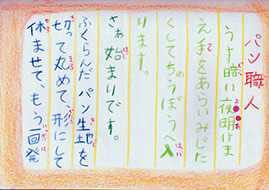 パン職人
うす暗い夜明けま
え手をあらいみじた
くしてちゅうぼうへ入
ります。
さあ始まりです。
ふくらんだパン生地を
切って丸めて、形にして
休ませて、もう一回発